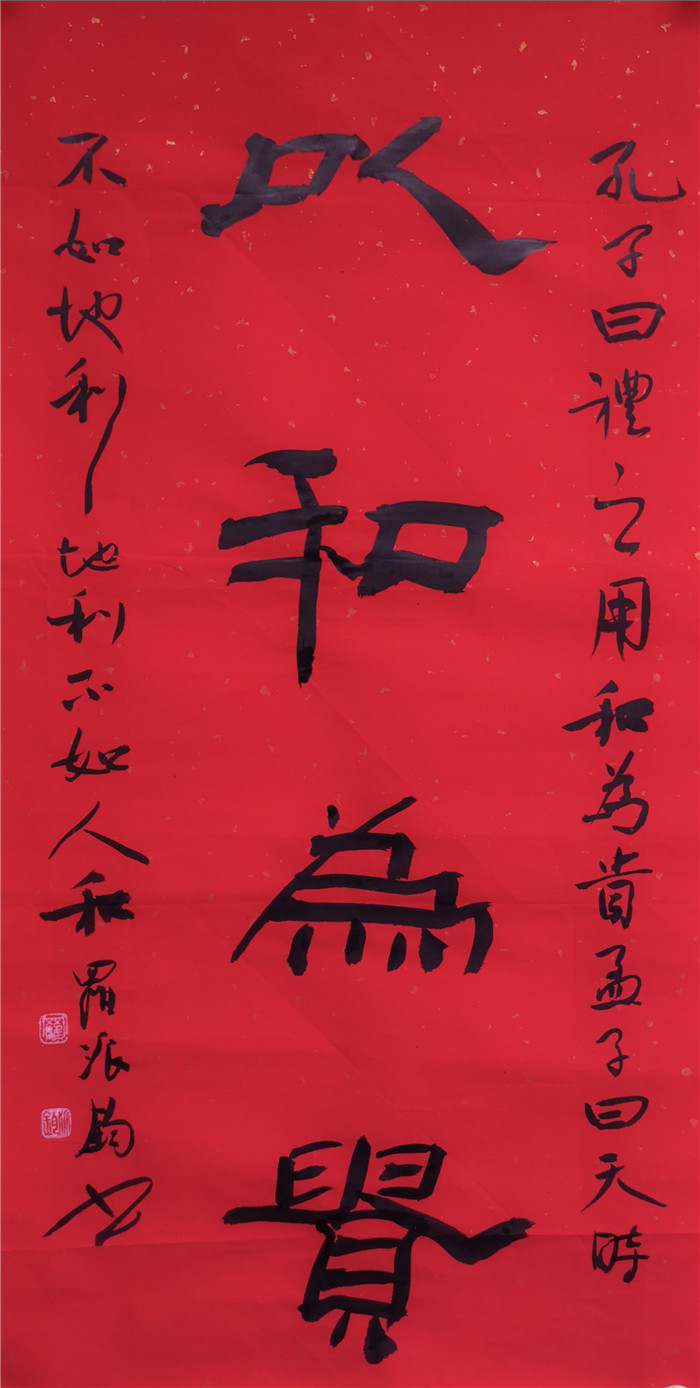 孔子曰禮之用和為貴孟子曰天時
以和為貴
不如地利地利不如人和